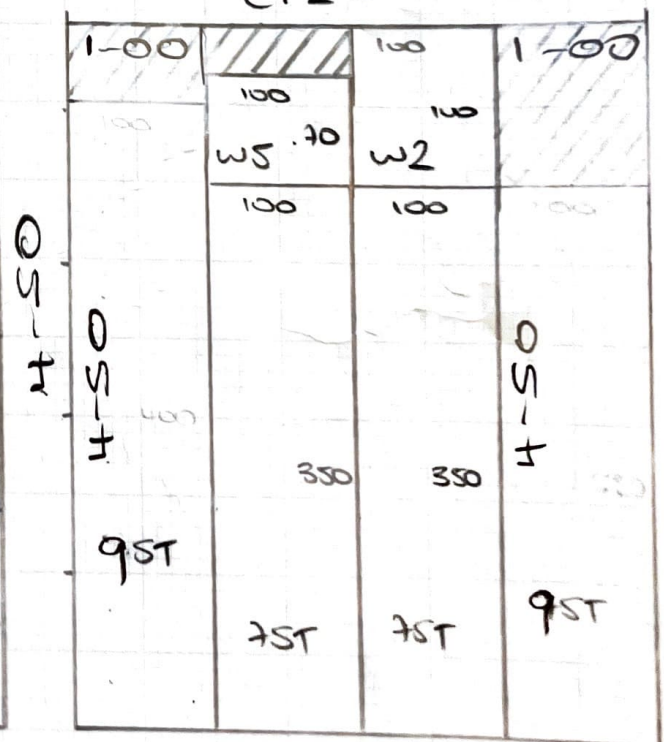 1-00
100
1-00
100
100
100
W5 .70
W2
100
100
100
4-50
4-50
4-50
400
350
350
9ST
9ST
7ST
7ST